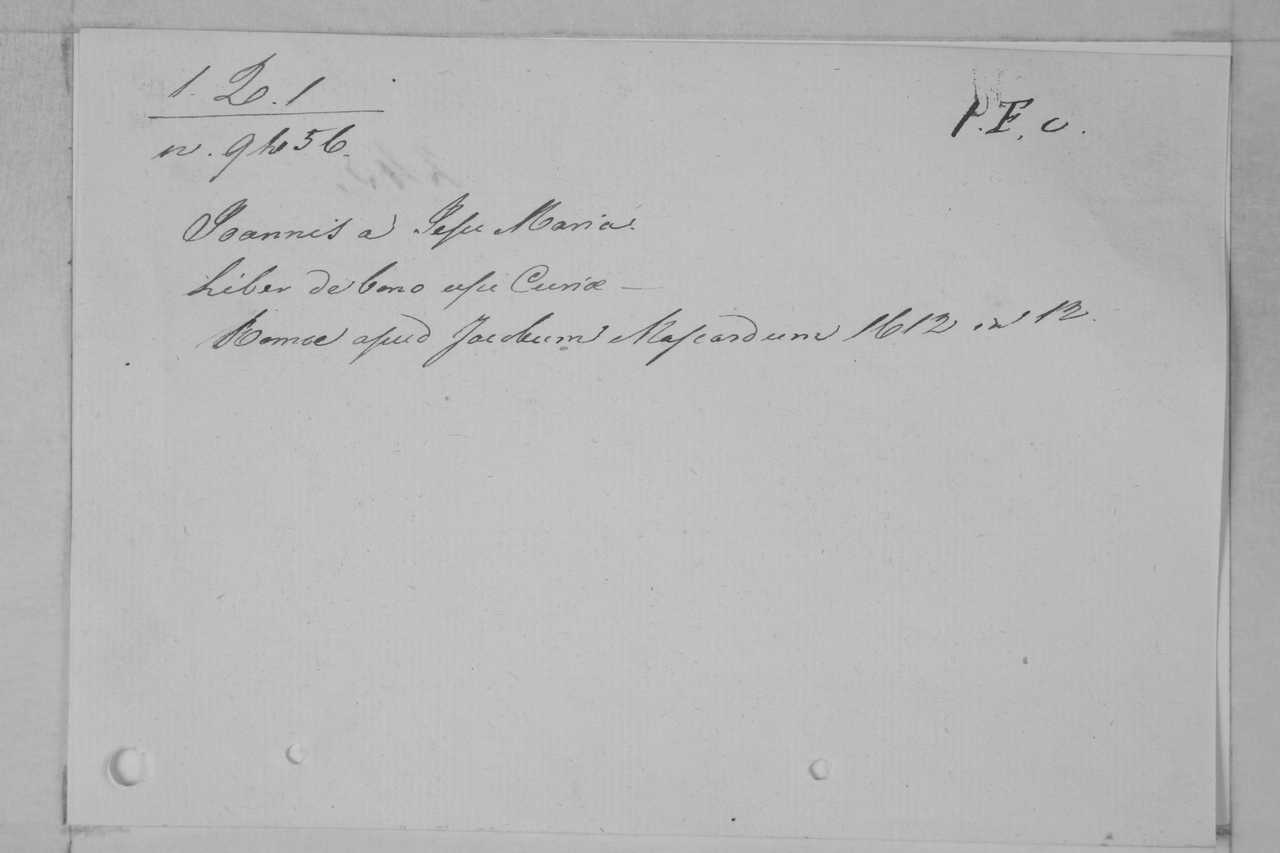 1. Q. 1
1. F. c.
n. 9456.
Joannis a Jesu Maria.
Liber de bono usu Curiæ —
Romæ apud Jacobum Mascardum 1612 in 12.